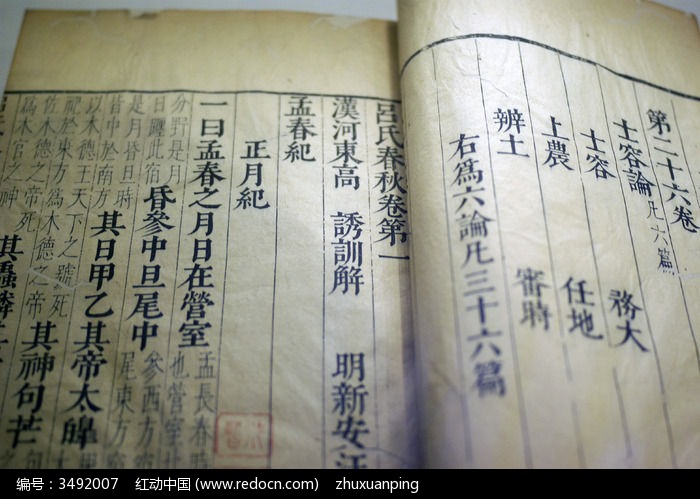 第二十六卷
士容論凡六篇
士容　務大
上農　任地
辨土　審時
右爲六論凡三十六篇
呂氏春秋卷第一
漢河東高　誘訓解　明新安汪
孟春紀
正月紀
一曰孟春之月日在營室孟長春時
也營室北
分野是月
日躔此宿昏參中旦尾中參西方
尾東方
是月昏旦時
皆中於南方其日甲乙其帝太皞
以木德王天下之號死
祀於東方爲木德之帝其神句芒
佐木德之帝死
爲木官之神其蟲鱗
編号：3492007　红动中国 (www.redocn.com)　zhuxuanping